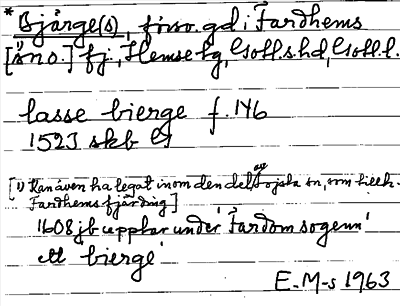 * Bjärge(s), försv. gd i Fardhems
[sn o.] fj., Hemse hg, Gotl.s hd, Gotl. l.
lasse bierge f. 146
1523 skb
[1) Kan även ha legat inom den del av ojska sn, som
Fardhems fjärding]
1608 jb upptar under 'Fardom sogenn'
ett 'bierge'
E. M-s 1963